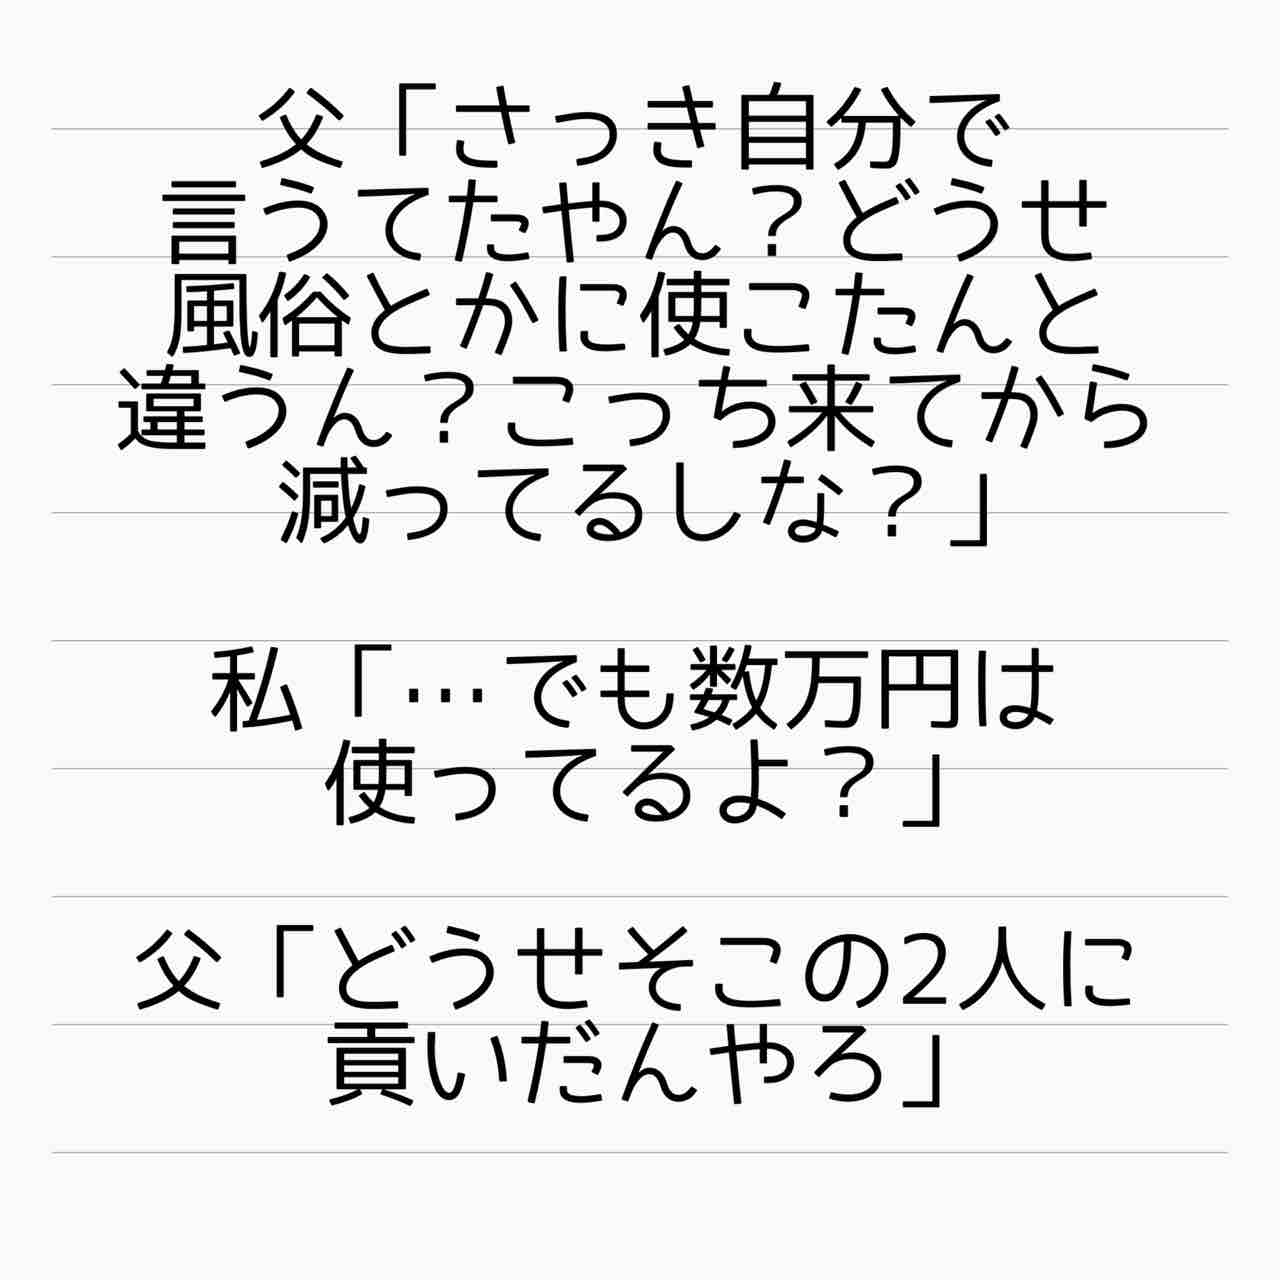 父「さっき自分で
言うてたやん？どうせ
風俗とかに使こたんと
違うん？こっち来てから
減ってるしな？」
私「…でも数万円は
使ってるよ？」
父「どうせそこの2人に
貢いだんやろ」